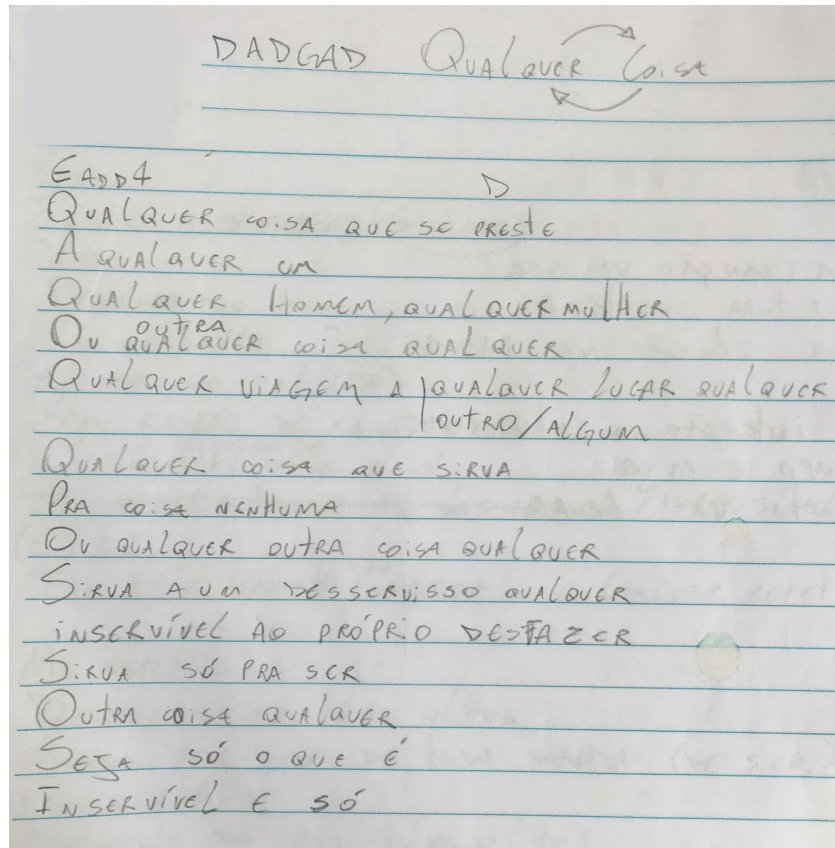 DADGAD Qualquer Coisa
Eadd4 D
Qualquer coisa que se preste
A qualquer um
Qualquer homem, qualquer mulher
outra
Ou qualquer coisa qualquer
Qualquer viagem a qualquer lugar qualquer
outro/algum
Qualquer coisa que sirva
Pra coisa nenhuma
Ou qualquer outra coisa qualquer
Sirva a um desservisso qualquer
inservível ao próprio desfazer
Sirva só pra ser
Outra coisa qualquer
Seja só o que é
Inservível e só